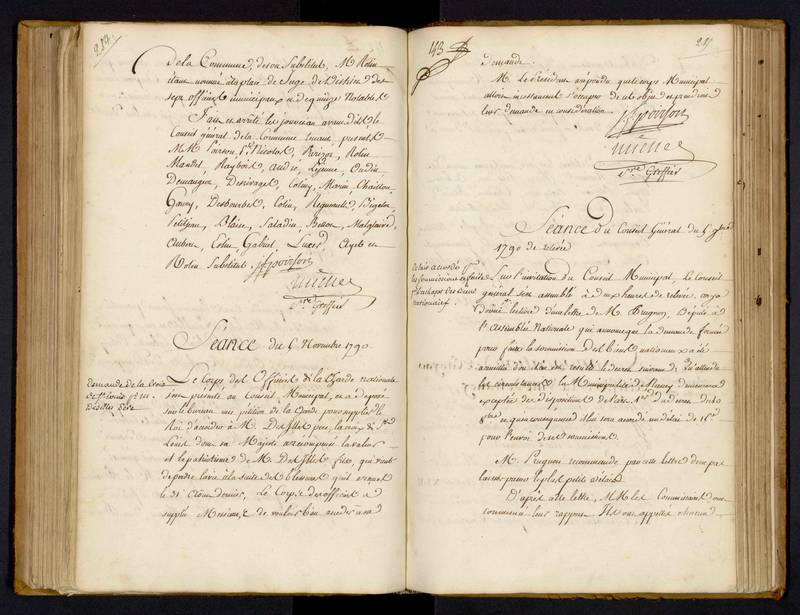 214.
De la Commune, de son Substitut, M. Rolin
étant nommé à la place de Juge de District des
sept officiers municipaux et de quinze Notables
Fait et arrêté les jour et an avant dits le
Conseil général de la Commune tenant, présents
M.M. Poirson, Nicolas, Rolin
Mandel, Raybois, André, Lejeune, Oudin,
Demangeot, Desrivages, Colmy, Marin, Chatillon,
Genny, Desbourbes, Colin, Regneault, Bigelot
Petitjean, Blaise, Saladin, Malglaive,
Aubry, Colin Gabriel, Luxer et
Rolin Substitut.
Poirson
Michel
S.re Greffier
Séance du 5 Novembre 1790
demande de la Croix
de St Louis pr M.
Desilles père
Le Corps des Officiers de la Garde nationale
s'est présenté au Conseil Municipal, et a déposé
sur le bureau une pétition de la Garde pour supplier le
Roi d'accorder à M. Desilles père, la croix de St
Louis dont sa Majesté a récompensé la valeur
et le patriotisme de M. Desilles fils, qui vient
de perdre la vie à la suite des blessures qu'il a reçues
le 31 Août dernier, Le Corps des officiers a
supplié Messieurs de vouloir bien accéder à sa
143
215
demande.
M. le Président a répondu que le corps Municipal
alloit incessament s'occuper de cet objet et prendroit
leur demande en considération.
Poirson
Michel
S.re Greffier
Séance du Conseil Général du 5 9bre
1790 de relevée
délais accordés pr
les soumissions à faire
pr l'achapt des biens
nationaux.
Sur l'invitation du Conseil Municipal, le Conseil
général s'est assemblé à deux heures de relevée, on y a
donné lecture d'une lettre de M. Prugnon, Député à
l'Assemblée Nationale qui annonce que la demande formée
pour faire la soumission des biens nationaux a été
accueillie
les circonstances la Municipalité de Nancy demeurera
exceptée des dispositions de l'art. 1er du décret du 10
8bre et qu'en conséquence il lui sera accordé un délai de 15 J
pour l'envoi de ses soumissions.
M. Prugnon recommande par cette lettre de ne pas
laisser passer le plus petit délai.
D'après cette lettre, MM. les Commissaires ont
commencé leur rapport. Ils ont appellés